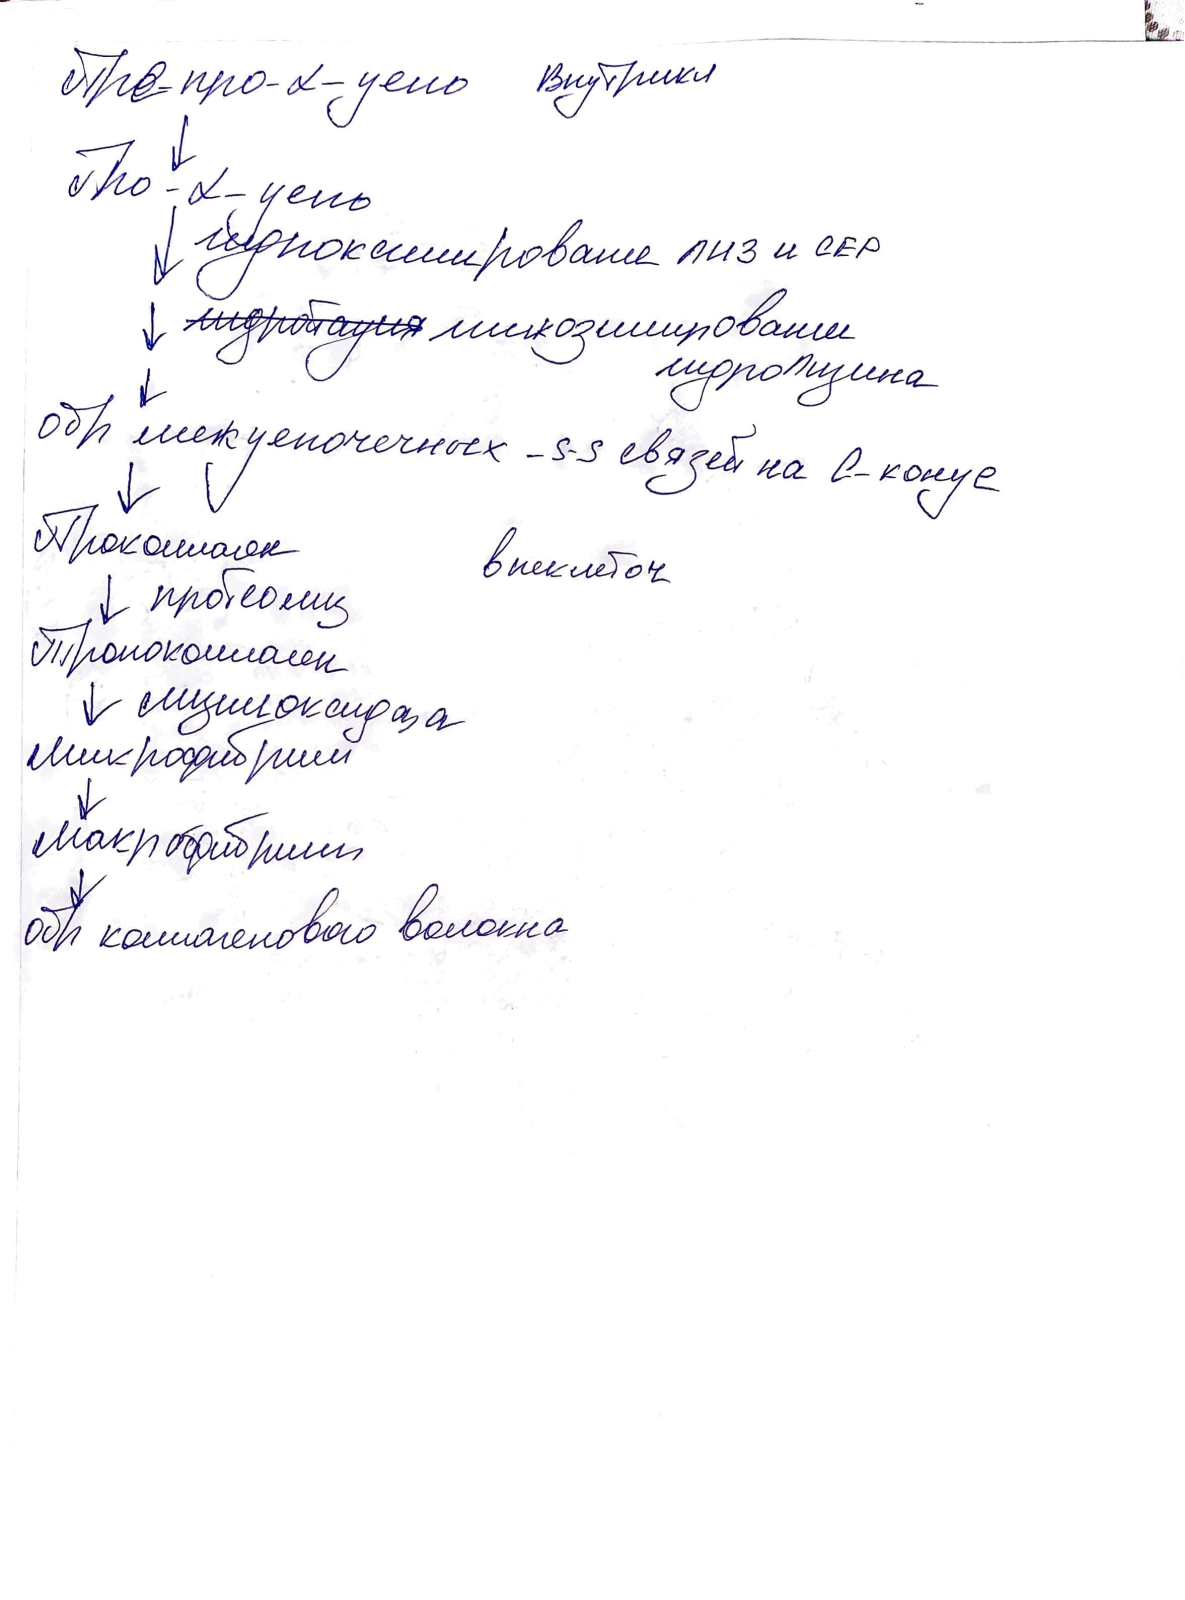 Пре-про-α-цепь Внутрикл
Про-α-цепь
гидроксилирование ЛИЗ и СЕР
гидротация гликозилирование
гидролизина
обр межцепочечных -S-S связей на С-конце
Проколлаген внеклеточ
протеолиз
Тропоколлаген
лизилоксидаза
микрофибрилл
макрофибриллы
обр коллагенового волокна